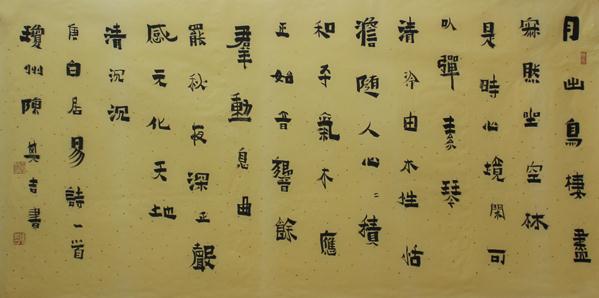 月出鳥棲盡
寂然坐空林
是時心境閑可
以彈素琴
清泠由木性恬
澹隨人心〻積
和平氣木應
正始音響餘
羣動息曲
罷秋夜深正聲
感元化天地
清沉沉
唐白居易詩一首
瓊州陳吉書